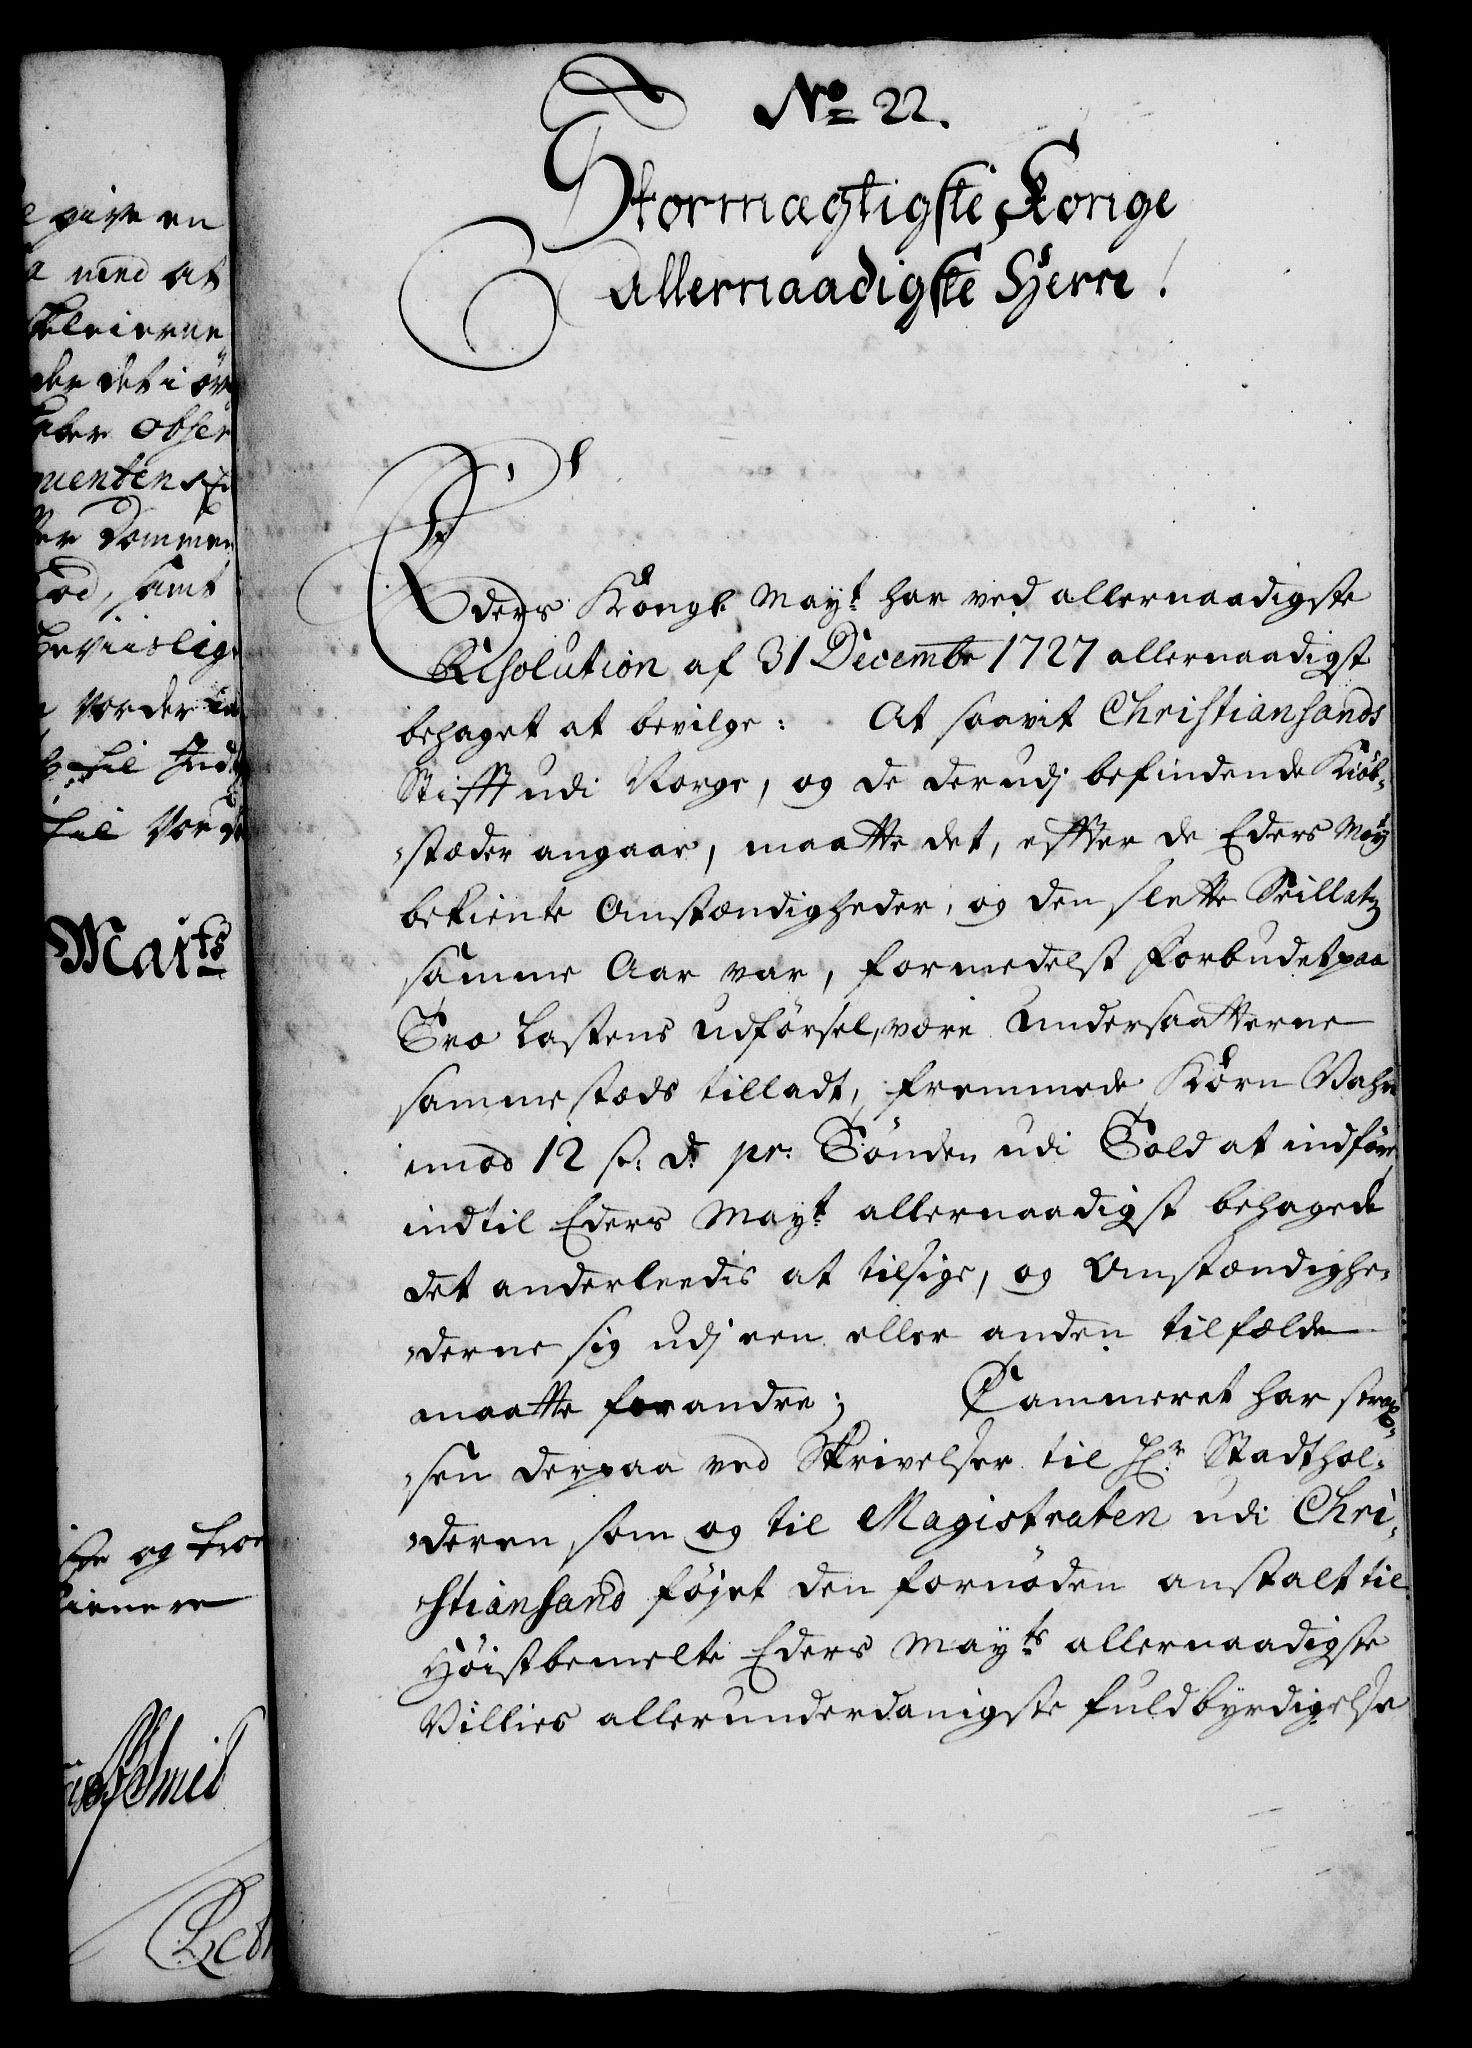 No 22.
Stormægtigste Konge
Allernaadigste Herre!
Eders Kongl. Mayt. har ved allernaadigste
Resolution af 31 Decembr 1727 allernaadigst
behaget at bevilge: At saavit Christiansands
Stifft udi Norge, og de derudj befindende Kiöb-
stæder angaar, maatte det, effter de Eders May
bekiente Omstændigheder, og den slette
samme Aar var, formedelst Forbudet paa
Træ Lastens udförsel, være Undersaatterne
sammestæds tilladt, fremmede Korn Vahre
imod 12 s: d. pr. Tönden udi Told at indföre,
indtil Eders Mayt. allernaadigst behagede
det anderleedis at tilsige, og Omstændighe-
derne sig udj een eller anden tilfælde
maatte forandre; Cammeret har strax-
sen derpaa ved Skrivelser til Hr. Stadthol-
deren som og til Magistraten udi Chri-
stiansand föjet den fornöden anstalt til
Höistbemelte Eders Mayts allernaadigste
Villies allerunderdanigste fuldbyrdigelse
give en
med at
det i
obser
Dommen
samt
beviislig
vorder
til
til
Maits
og troe
tienere